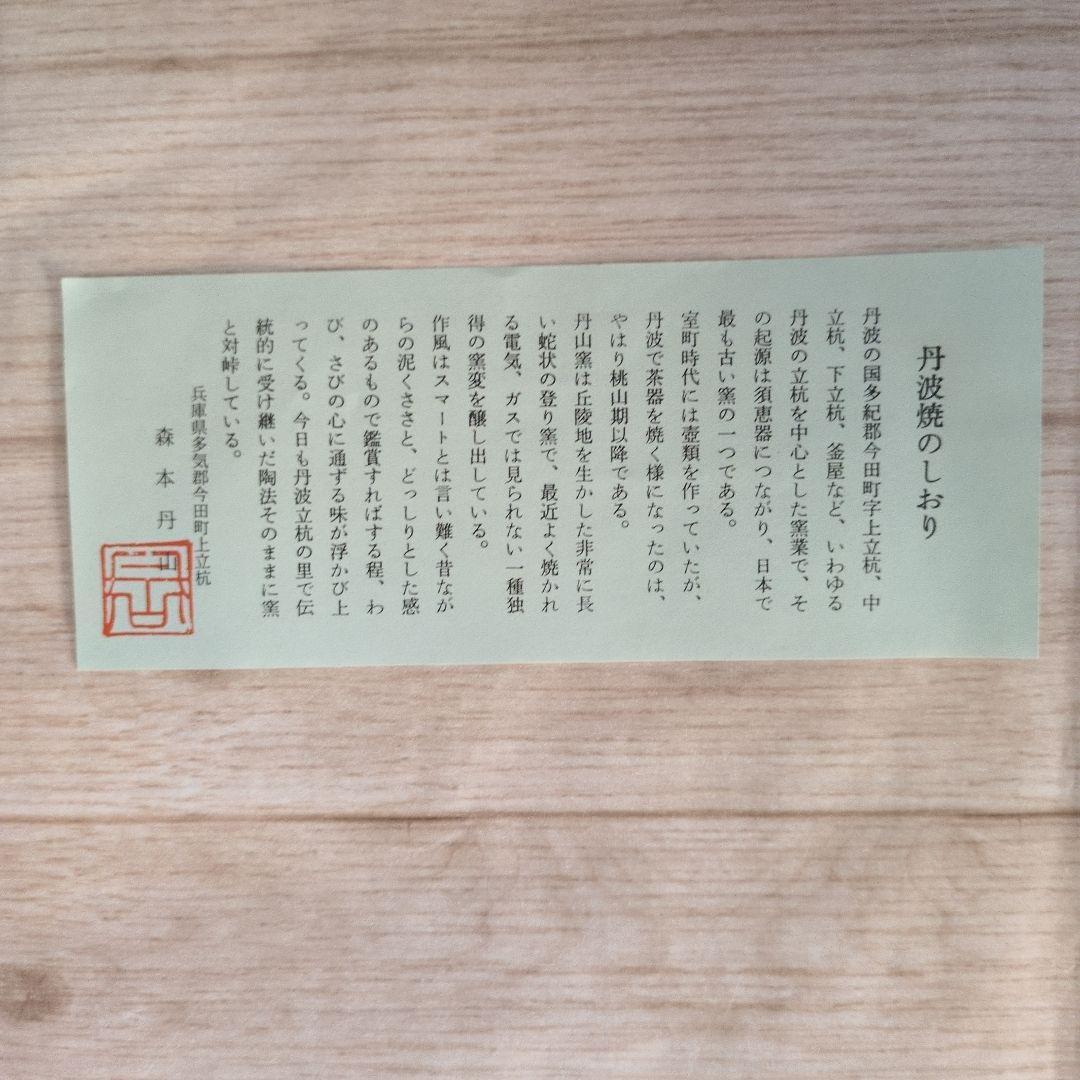 丹波焼のしおり
丹波の国多紀郡今田町字上立杭、中
立杭、下立杭、釜屋など、いわゆる
丹波の立杭を中心とした窯業で、そ
の起源は須恵器につながり、日本で
最も古い窯の一つである。
室町時代には壺類を作っていたが、
丹波で茶器を焼く様になったのは、
やはり桃山期以降である。
丹山窯は丘陵地を生かした非常に長
い蛇状の登り窯で、最近よく焼かれ
る電気、ガスでは見られない一種独
得の窯変を醸し出している。
作風はスマートとは言い難く昔なが
らの泥くささと、どっしりとした感
のあるもので鑑賞すればする程、わ
び、さびの心に通ずる味が浮かび上
ってくる。今日も丹波立杭の里で伝
統的に受け継いだ陶法そのままに窯
と対峠している。
兵庫県多気郡今田町上立杭
森本丹山